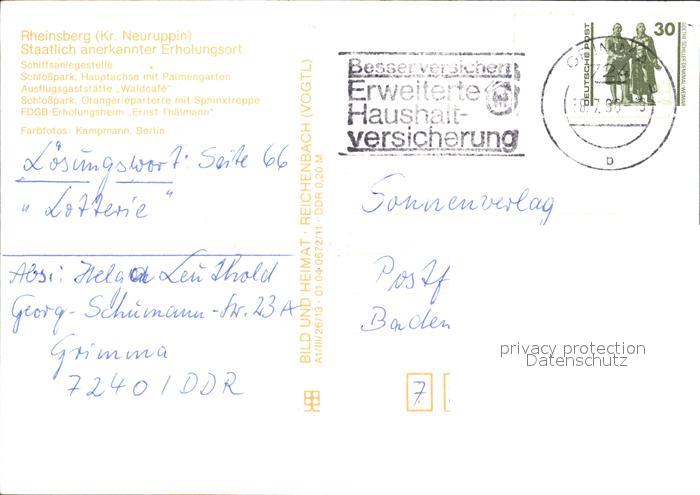 Rheinsberg (Kr. Neuruppin)
Staatlich anerkannter Erholungsort
Schiffsanlegestelle
Schloßpark, Hauptachse mit Palmengarten
Ausflugsgaststätte „Waldcafé"
Schloßpark, Orangerieparterre mit Sphinxtreppe
FDGB-Erholungsheim „Ernst Thälmann"
Farbfotos: Kampmann, Berlin
Lösungswort: Seite 66
„Lotterie"
Abs: Helga Leuthold
Georg-Schumann-Str. 23 A
Grimma
7240 / DDR
BILD UND HEIMAT · REICHENBACH (VOGTL)
A1/III/26/13 · 01 04 0672/11 · DDR 0,20 M
Besser versichert
Erweiterte
Haushalt-
versicherung
DEUTSCHE POST
30
b
Sonnenverlag
Postf
Baden
7
privacy protection
Datenschutz